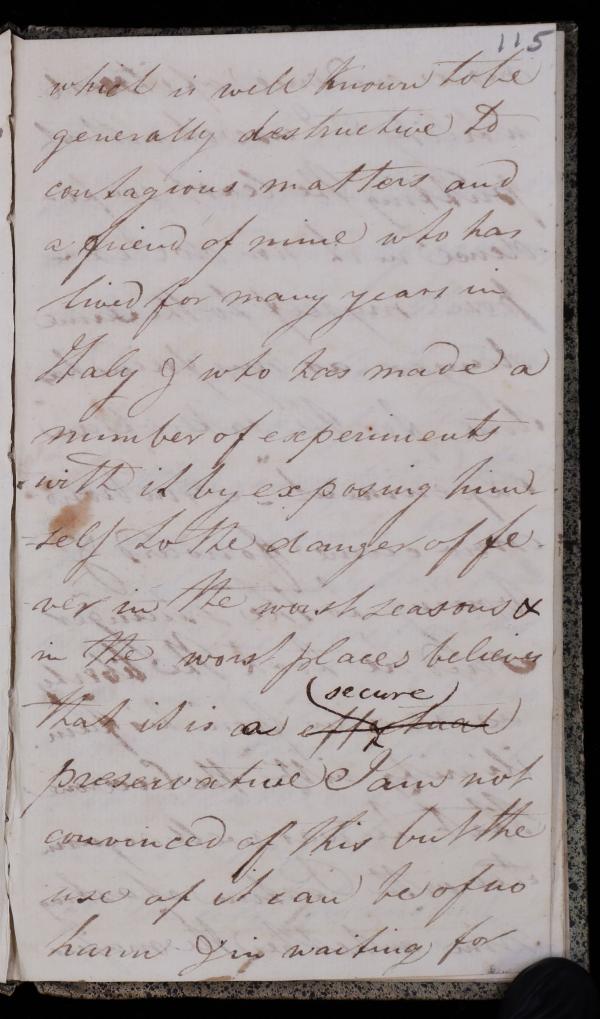 115
which is well known to be
generally destructive to
contagious matters and
a friend of mine who has
lived for many years in
Italy & who has made a
number of experiments
with it by exposing him-
-self to the danger of fe-
-ver in the worst seasons &
in the worst places believes
(secure)
that it is a effectual
preservative I am not
convinced of this but the
use of it can be of no
harm & in waiting for